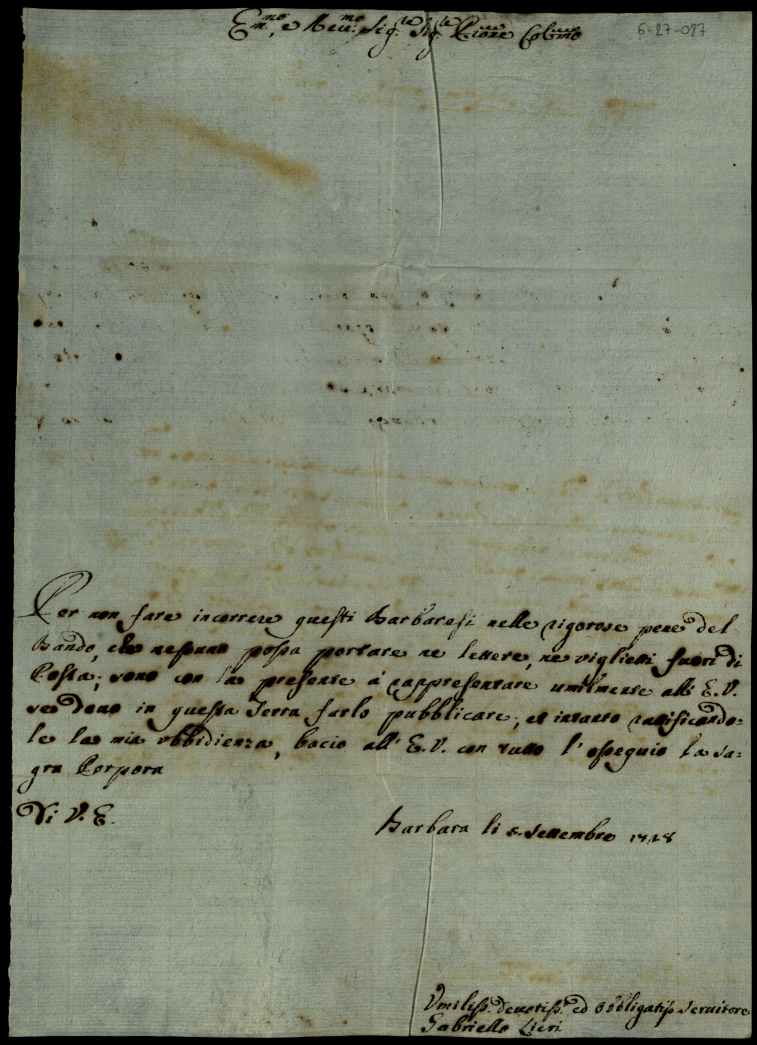 Em.mo, e Rev.mo Sig.re Sig.re P.rone Col.mo
6-27-087
Per non fare incorrere questi Barbaresi nelle rigorose pene del
Bando, che nessuno possa portare ne lettere, ne viglietti fuori di
Posta; sono con la presente à rappresentare umilmente all' E. V.
se devo in questa Terra farlo pubblicare; et intanto ratificando=
le la mia ubbidienza, bacio all' E. V. con tutto l' ossequio la sa=
gra Porpora
Di V. E.
Barbara li 8. Settembre 1728
Umiliss. devotiss. ed Obbligatiss Servitore
Gabriello